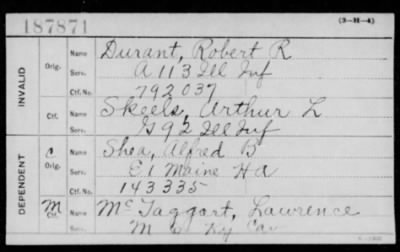 187871 (3-H-4)
INVALID
Orig. Name Durant, Robert R
Serv. A 113 Ill Inf
Ctf. No. 792037
Ctf. Name Skeels, Arthur L
Serv. G 92 Ill Inf
DEPENDENT
C Orig. Name Shea, Alfred B
Serv. E 1 Maine H A
Ctf. No. 143335
M Ctf. Name McTaggart, Lawrence
Serv. M Ky Cav